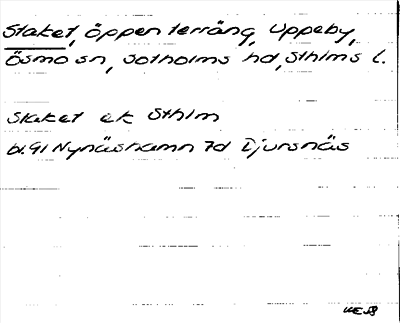 Staket, öppen terräng, Uppeby,
Ösmo sn, Sotholms hd, Sthlms l.
Staket ek Sthlm
bl. 91 Nynäshamn 7d Djursnäs